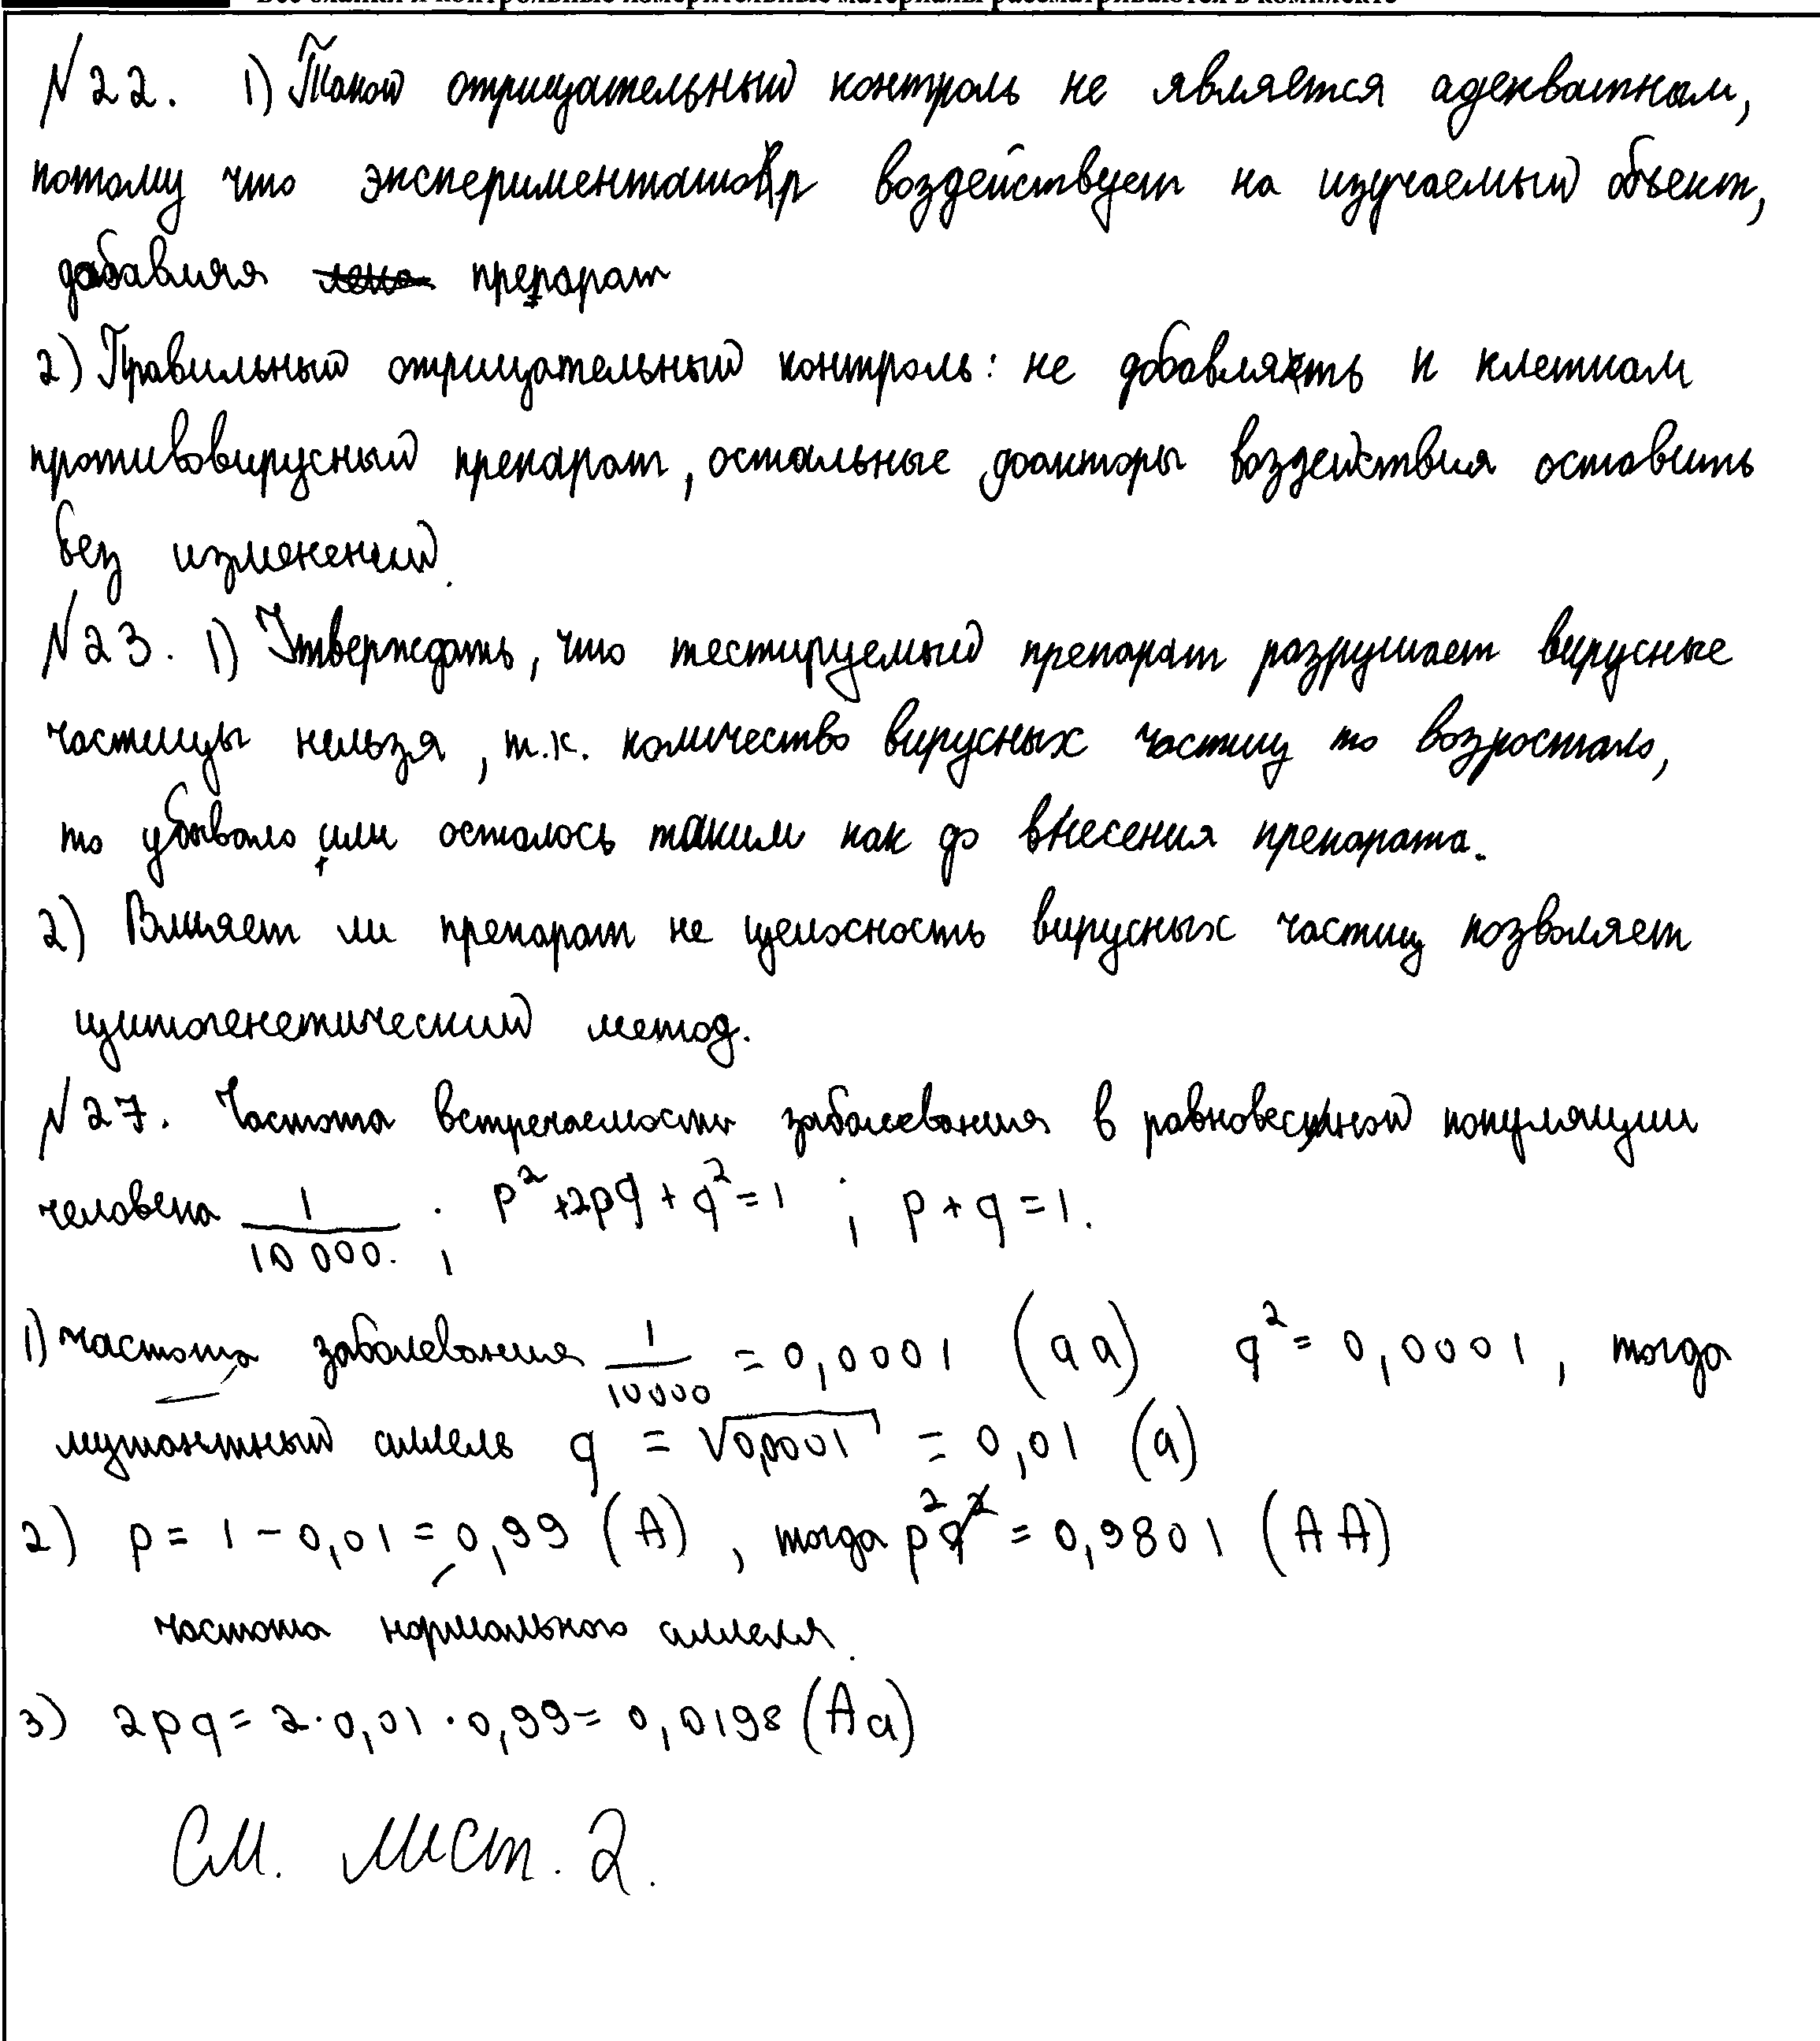 Все бланки и контрольные измерительные материалы рассматриваются в комплекте
№22. 1) Такой отрицательный контроль не является адекватным,
потому что экспериментатор воздействует на изучаемый объект,
добавляя препарат
2) Правильный отрицательный контроль: не добавлять к клеткам
противовирусный препарат, остальные факторы воздействия оставить
без изменений.
№23. 1) Утверждать, что тестируемый препарат разрушает вирусные
частицы нельзя, т.к. количество вирусных частиц то возростало,
то убывало, или осталось таким как до внесения препарата.
2) Влияет ли препарат не целосность вирусных частиц позволяет
цитогенетический метод.
№27. Частота встречаемости заболевания в равновесной популяции
человека 1/10 000. ; p²+2pq+q²=1 ; p+q=1.
1) частота заболевания 1/10000 = 0,0001 (aa) q²=0,0001, тогда
мутантный аллель q = √0,0001 = 0,01 (a)
2) p = 1 - 0,01 = 0,99 (A), тогда p² = 0,9801 (AA)
частота нормального аллеля.
3) 2pq = 2·0,01·0,99 = 0,0198 (Aa)
См. лист. 2.